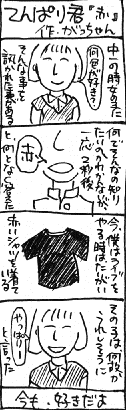 てんぱり君『赤』
作・がっちゃん
中一の時女の子に
何色が好き？
そんな事を
訊かれた事がある
何でそんなの知り
たいのかわからんが
一応2秒後
赤
と、何となく答えた
今、僕はライブを
やる時はたいがい
赤いシャツを着て
いる
そのコは何故か
うれしそうに
やっぱー
と言った
今も、好きだよ